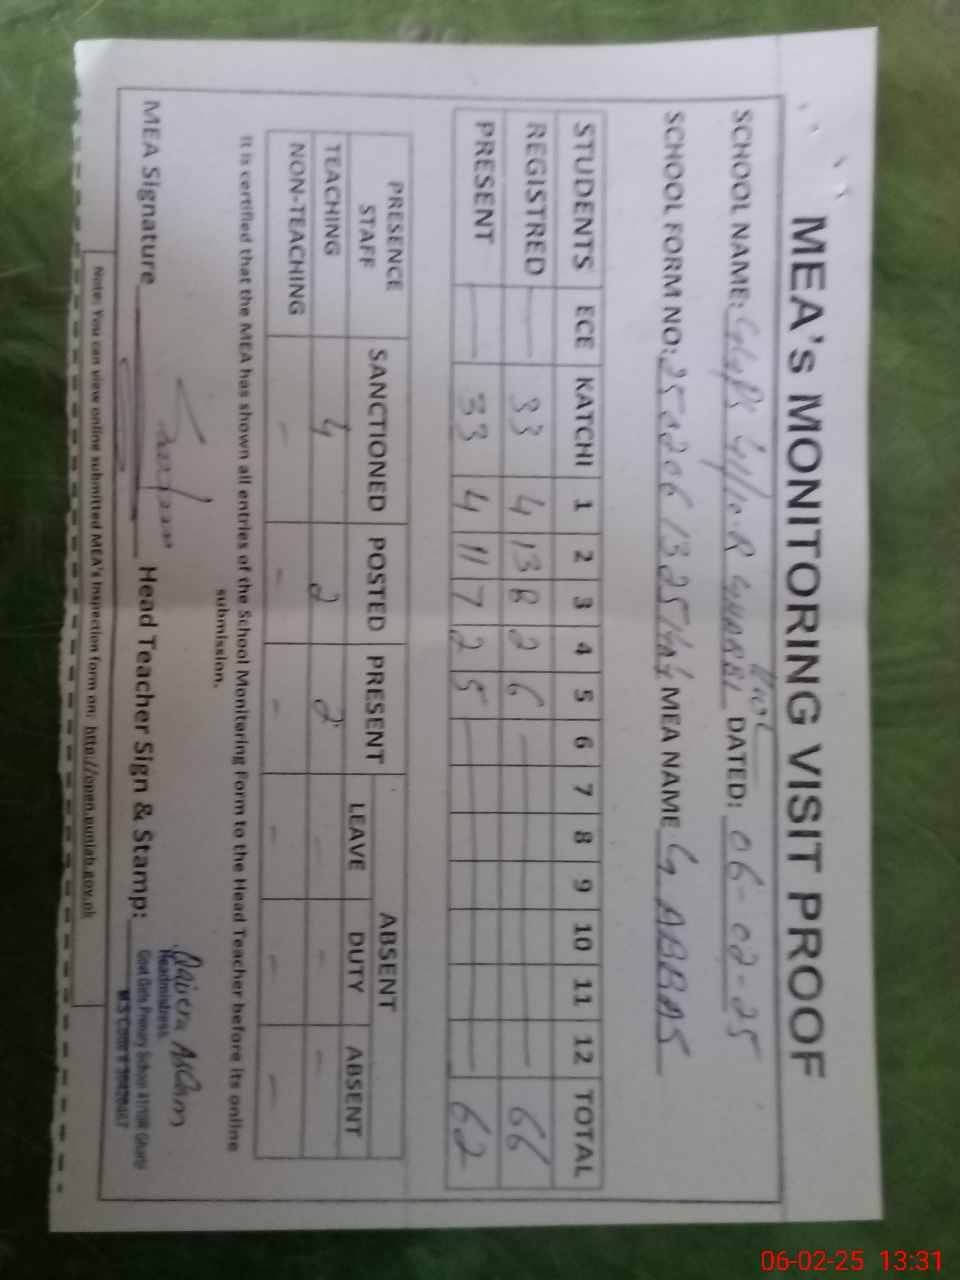 MEA's MONITORING VISIT PROOF
SCHOOL NAME: GGPS 41/10.R GHARBI DATED: 06-02-25
SCHOOL FORM NO: MEA NAME G. ABBAS
STUDENTS ECE KATCHI 1 2 3 4 5 6 7 8 9 10 11 12 TOTAL
REGISTRED — 33 4 13 8 2 6 — 66
PRESENT — 33 4 11 7 2 5 — 62
PRESENCE STAFF SANCTIONED POSTED PRESENT ABSENT
LEAVE DUTY ABSENT
TEACHING 4 2 2 - - -
NON-TEACHING - - - - - -
It is certified that the MEA has shown all entries of the School Monitoring Form to the Head Teacher before its online
submission.
MEA Signature Head Teacher Sign & Stamp:
Headmistress
Govt Girls Primary School 41/10R Gharbi
Note: You can view online submitted MEA's Inspection form on: http://open.punjab.gov.pk
06-02-25 13:31